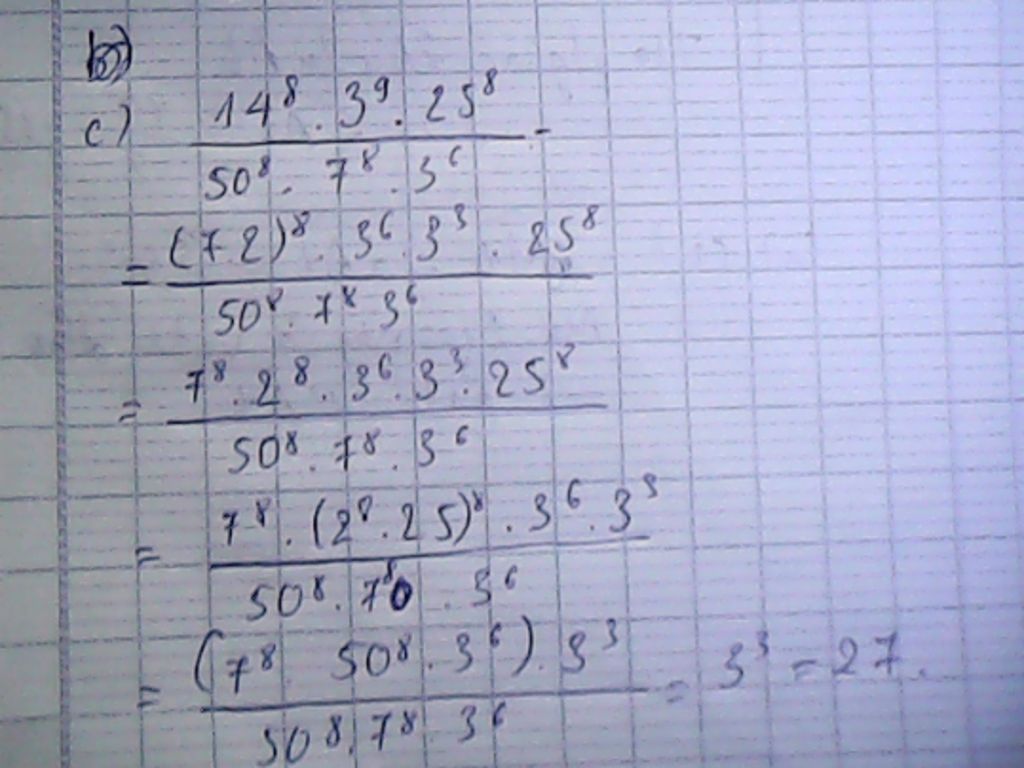 b)
c) 14⁸ . 3⁹ . 25⁸
50⁸ . 7⁸ . 3⁶
= (7.2)⁸ . 3⁶ . 3³ . 25⁸
50⁸ . 7⁸ 3⁶
= 7⁸ . 2⁸ . 3⁶ . 3³ . 25⁸
50⁸ . 7⁸ . 3⁶
= 7⁸ . (2⁸ . 25)⁸ . 3⁶ . 3³
50⁸ . 7⁸ . 3⁶
= (7⁸ 50⁸ . 3⁶) . 3³ = 3³ = 27.
50⁸ . 7⁸ . 3⁶